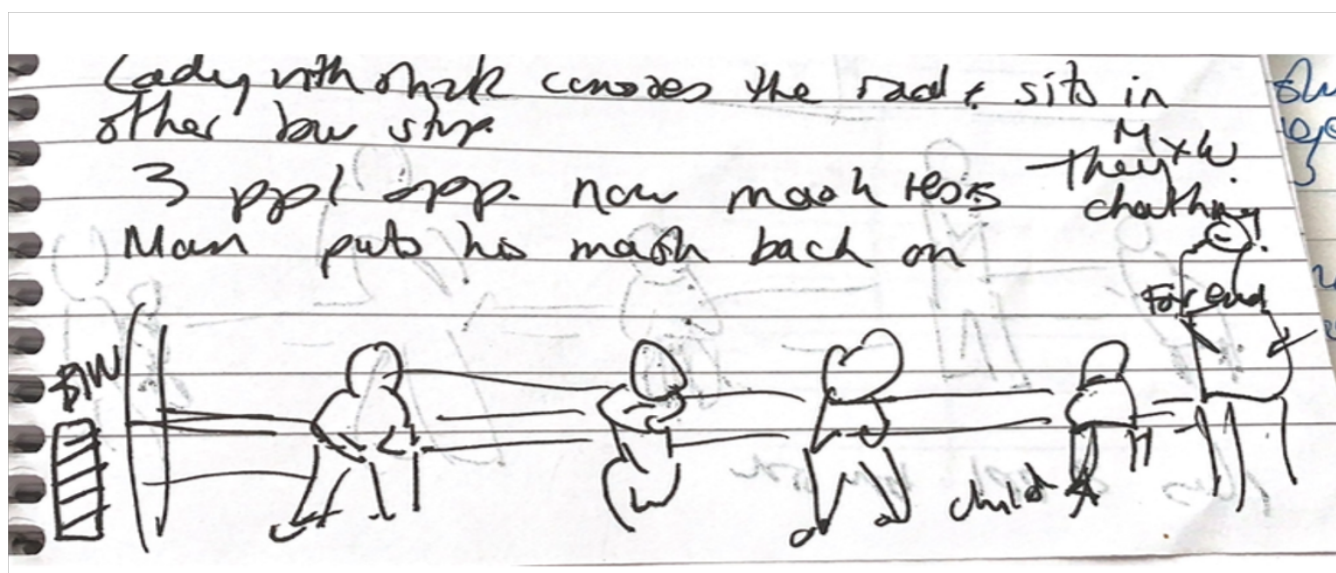 Lady with stick crosses the road & sits in
other bus stop.
3 ppl opp. now mask less
They
chatting!
Man puts his mask back on
Far end
BIN
child